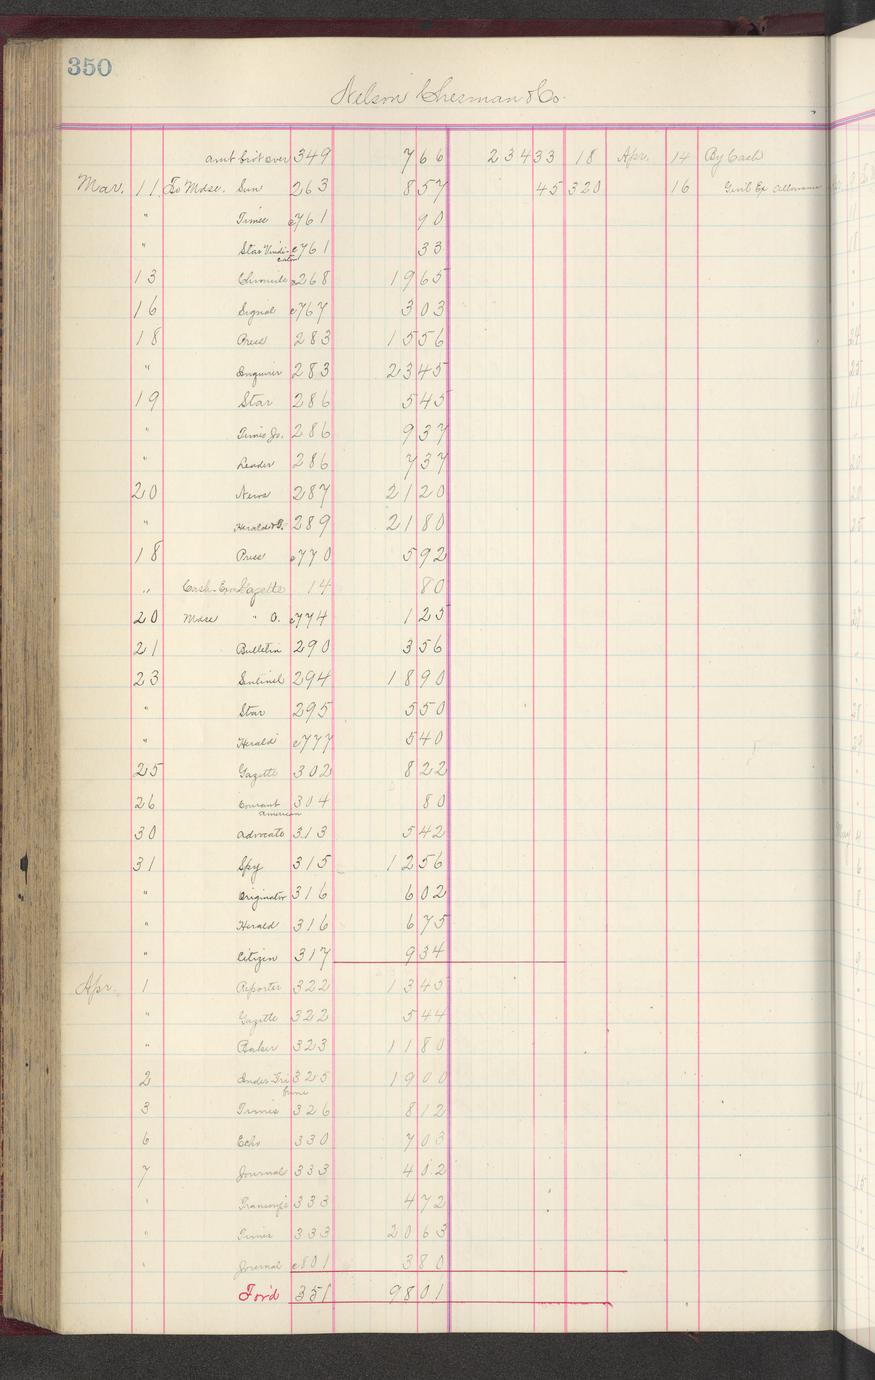 350
Nelson Chesman & Co.
amt bro't over 349 7 66 234 33 18 Apr. 14 By Cash
Mar. 11 To Mdse. Sun 263 8 57 45 320 16 Gen'l Ex allowance
" Times c761 90
" Star Vindicator c761 33
13 Chronicle 268 19 65
16 Signal c767 3 03
18 Press 283 15 56
" Enquirer 283 23 45
19 Star 286 5 45
" Times Jo. 286 9 37
" Leader 286 7 37
20 News 287 21 20
" Herald & 289 21 80
18 Press c770 5 92
" Cash-Exp Gazette 14 80
20 Mdse " O. c774 1 25
21 Bulletin 290 3 56
23 Sentinel 294 18 90
" Star 295 5 50
" Herald c777 5 40
25 Gazette 302 8 22
26 Courant 304 80
American
30 Advocate 313 5 42
31 Spy 315 12 56
" Originator 316 6 02
" Herald 316 6 75
" Citizen 317 9 34
Apr. 1 Reporter 322 13 45
" Gazette 322 5 44
" Baker 323 11 80
2 Index-Tribune 325 19 00
3 Times 326 8 12
6 Echo 330 7 03
7 Journal 333 4 02
" Transcript 333 4 72
" Times 333 20 63
" Journal c801 3 80
For'd 351 98 01